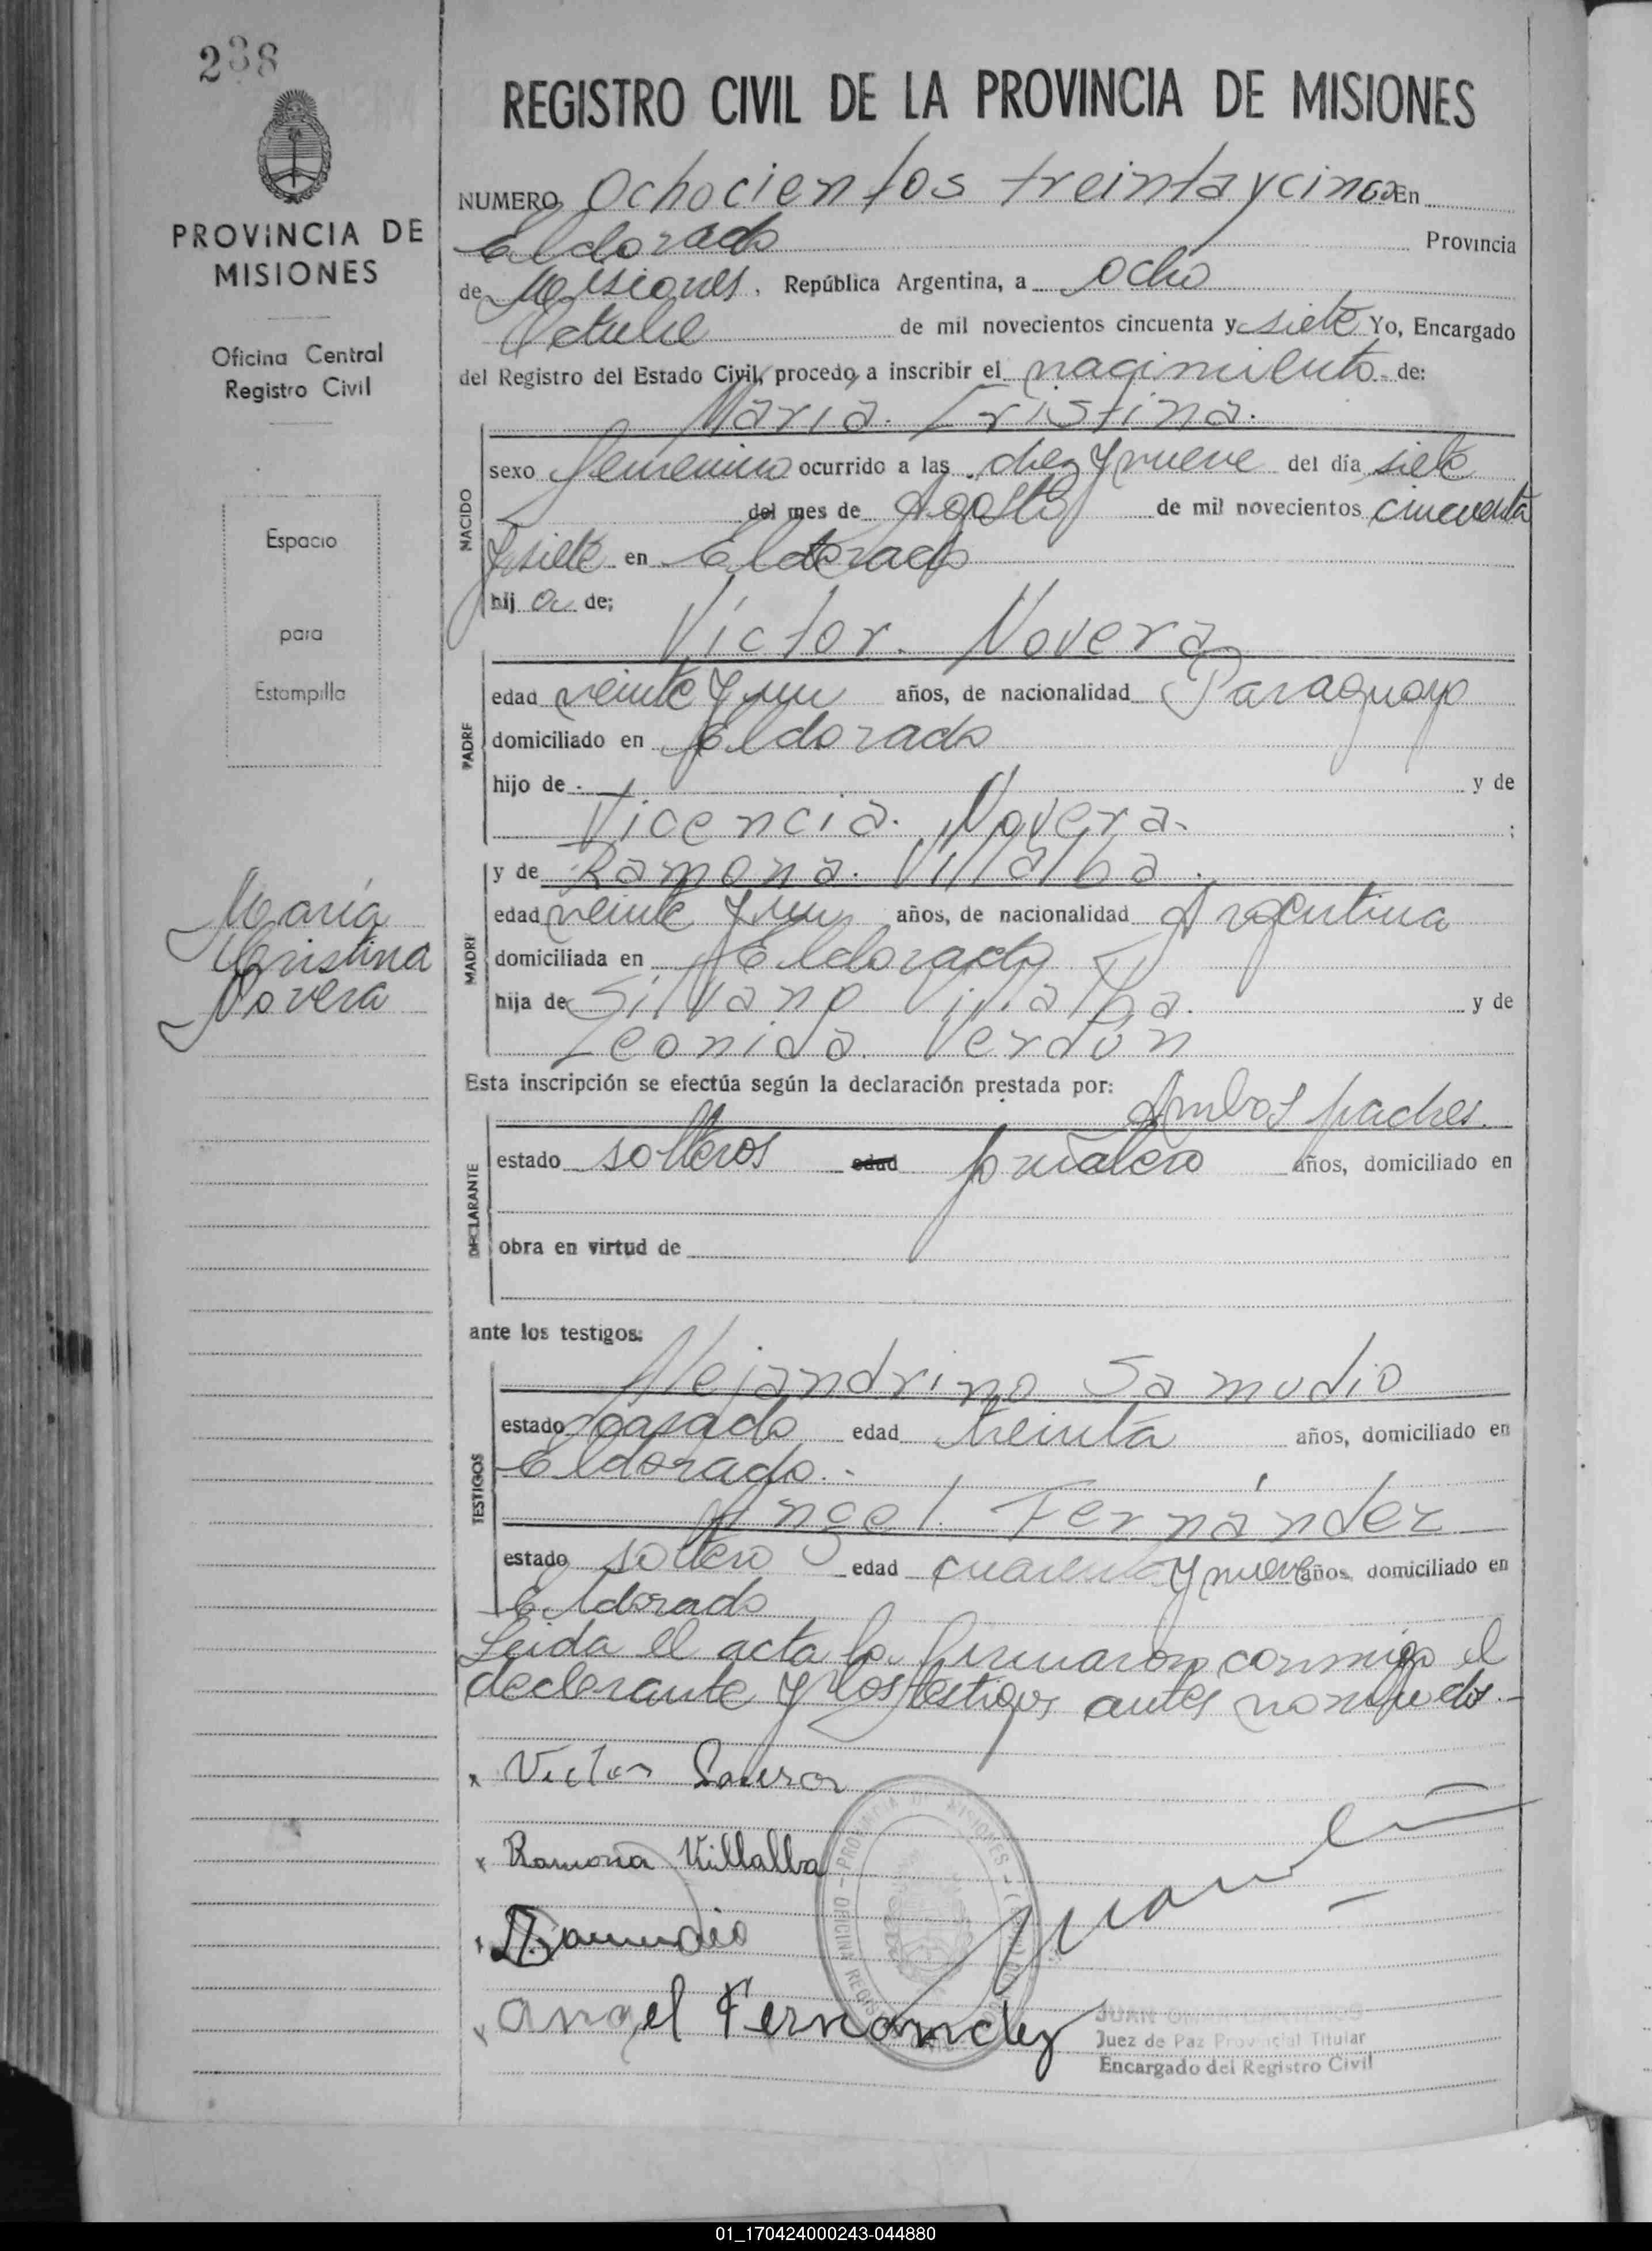 238
REGISTRO CIVIL DE LA PROVINCIA DE MISIONES
PROVINCIA DE
MISIONES
Oficina Central
Registro Civil
Espacio
para
Estampilla
María
Cristina
Novera
NUMERO Ochocientos treinta y cinco En
Eldorado Provincia
de Misiones, República Argentina, a ocho
Octubre de mil novecientos cincuenta y siete Yo, Encargado
del Registro del Estado Civil, procedo a inscribir el nacimiento de:
María. Cristina.
NACIDO
sexo femenino ocurrido a las diez y nueve del día siete
del mes de Agosto de mil novecientos cincuenta
y siete en Eldorado
hij a de;
Víctor. Novera
PADRE
edad veinte y un años, de nacionalidad Paraguayo
domiciliado en Eldorado
hijo de y de
Vicencia. Novera. ;
y de Ramona. Villalba.
MADRE
edad veinte y un años, de nacionalidad Argentina
domiciliada en Eldorado
hija de Silvano Villalba. y de
Leonida. Verdún
Esta inscripción se efectúa según la declaración prestada por:
Ambos padres.
DECLARANTE
estado solteros edad jornalero años, domiciliado en
obra en virtud de
ante los testigos:
Alejandrino Samudio
TESTIGOS
estado casado edad treinta años, domiciliado en
Eldorado.
Angel. Fernández
estado soltero edad cuarenta y nueve años, domiciliado en
Eldorado
Leida el acta la firmaron conmigo el
declarante y los testigos antes nombrados.-
x Victor
x Ramona Villalba
x Samudio
x angel Fernandez
JUAN
Juez de Paz Provincial Titular
Encargado del Registro Civil
01_170424000243-044880